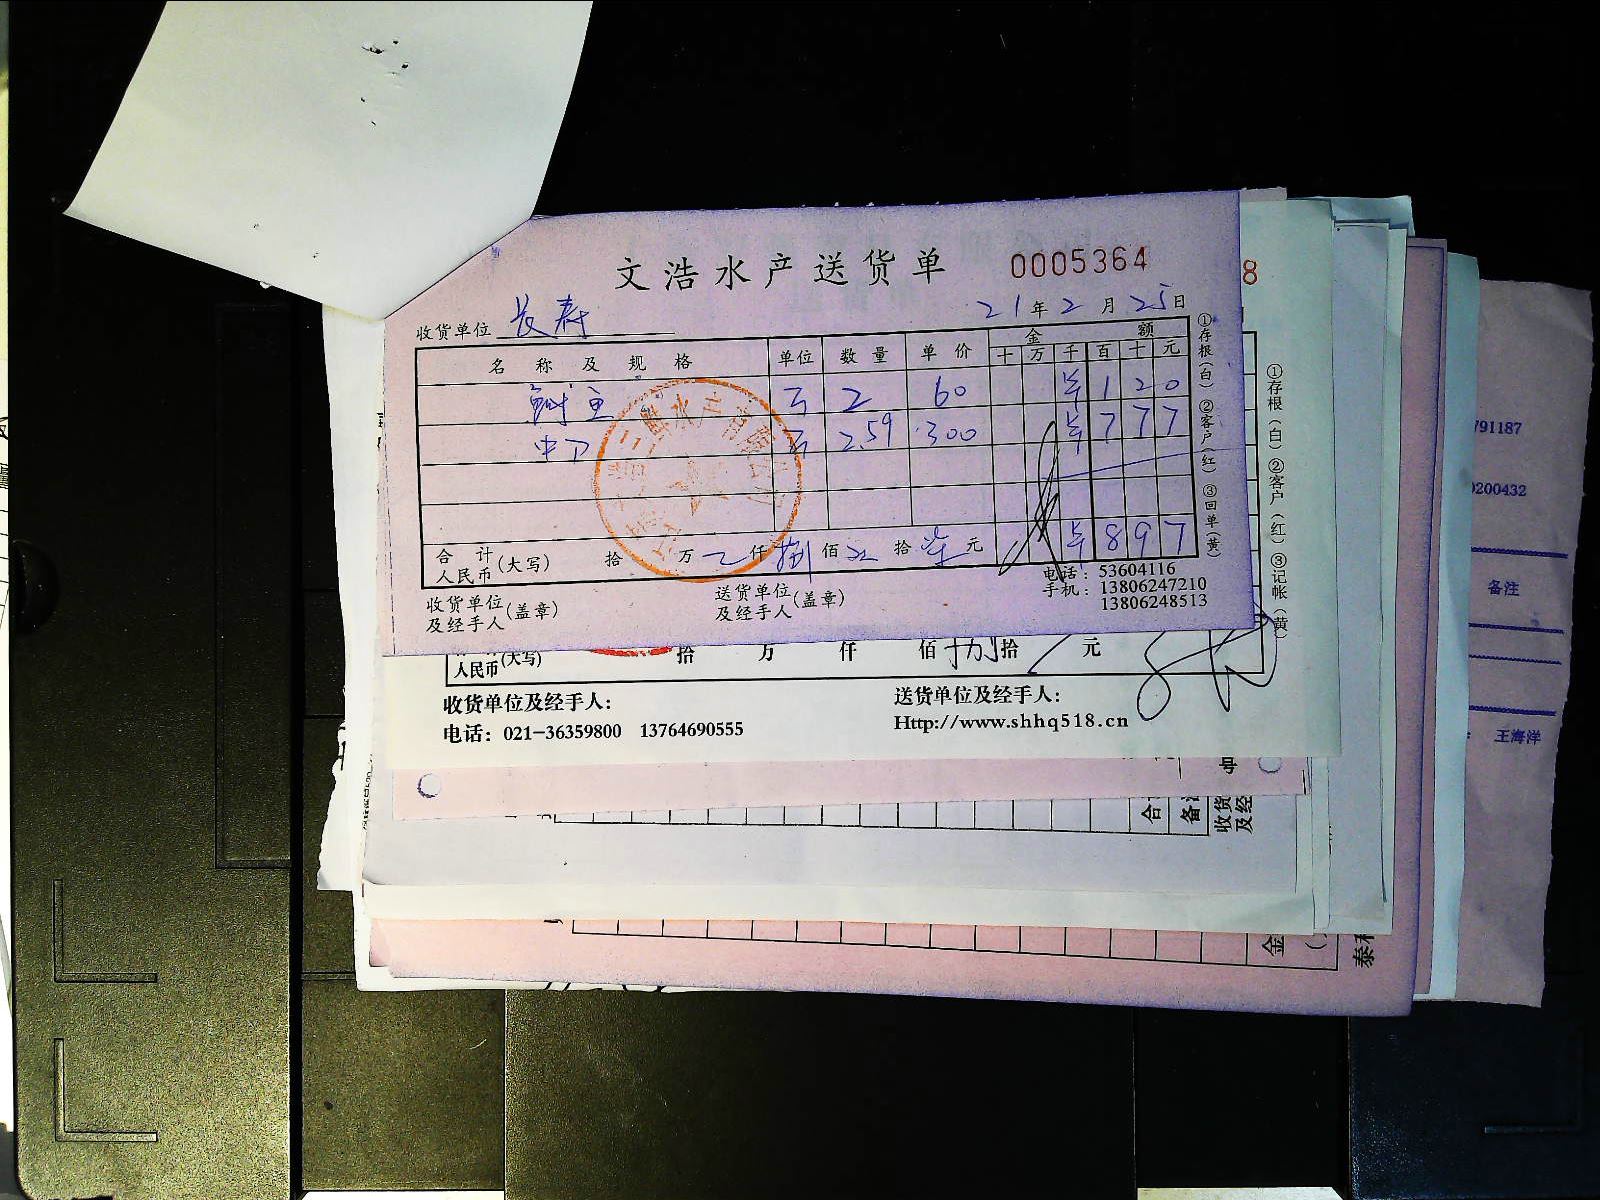 文浩水产送货单 0005364
8
收货单位 长寿 21年2月25日
名称及规格 单位 数量 单价 金额
十 万 千 百 十 元
鲥鱼 2 60 1 2 0
2.59 300 7 7 7
合计 人民币(大写) 拾 万 仟 捌 佰 拾 柒 元 8 9 7
①存根(白) ②客户(红) ③回单(黄)
收货单位及经手人(盖章) 送货单位及经手人(盖章)
电话：53604116
手机：13806247210
13806248513
①存根(白) ②客户(红) ③记帐(黄)
人民币(大写) 拾 万 仟 佰 捌 拾 元
收货单位及经手人： 送货单位及经手人：
电话：021-36359800 13764690555 Http://www.shhq518.cn
791187
0200432
备注
王海洋
合
备
收货
及经
金